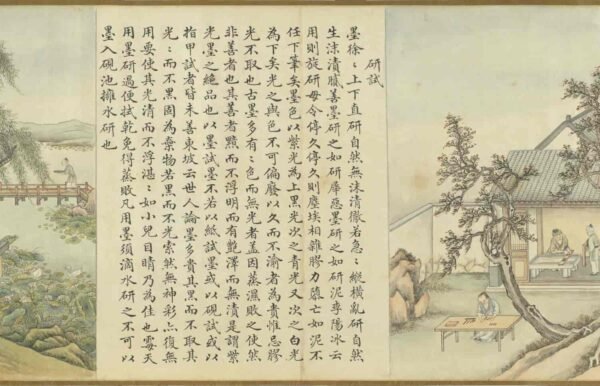 研試
墨徐〻上下直研自然無沫清徹若急〻縱橫亂研自然
生沫漬膩善墨研之如研犀惡墨研之如研泥李陽冰云
用則旋研毋令停久停久則塵埃相雜膠力隳亡如泥不
任下筆矣墨色以紫光為上黑光次之青光又次之白光
為下矣光之與色不可偏廢以久而不渝者為貴惟忌膠
光不取也古墨多有〻色而無光者盖因蒸濕敗之使然
非善者也其善者黯而不浮明而有艷澤而無漬是謂紫
光墨之絶品也以墨試墨不若以紙試墨或以硯試或以
指甲試者皆未善東坡云世人論墨多貴其黑而不取其
光〻而不黑固為棄物若黑而不光索然無神彩亦復無
用要使其光清而不浮湛〻如小兒目睛乃為佳也霉天
用墨研過便拭乾免得蒸敗凡用墨須滴水研之不可以
墨入硯池擁水研也